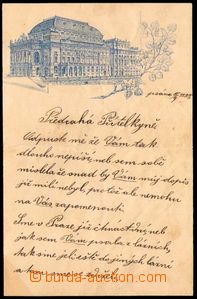 Předrahá Přítelkyně
Odpusť mě že Vám tak
dlouho nepíši, neb sem sobě
myslela že snad by Vám můj dopis
již milý nebyl, protože nemohu
na Vás zapomenouti.
Sme v Praze již čtrnáct dní, neb
jak sem Vám psala z lázních,
tak sme jeli ještě do jiných lázní
a
© burda-auction.com